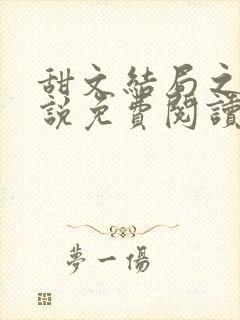 甜文結局之
說免費閱讀
夢一傷